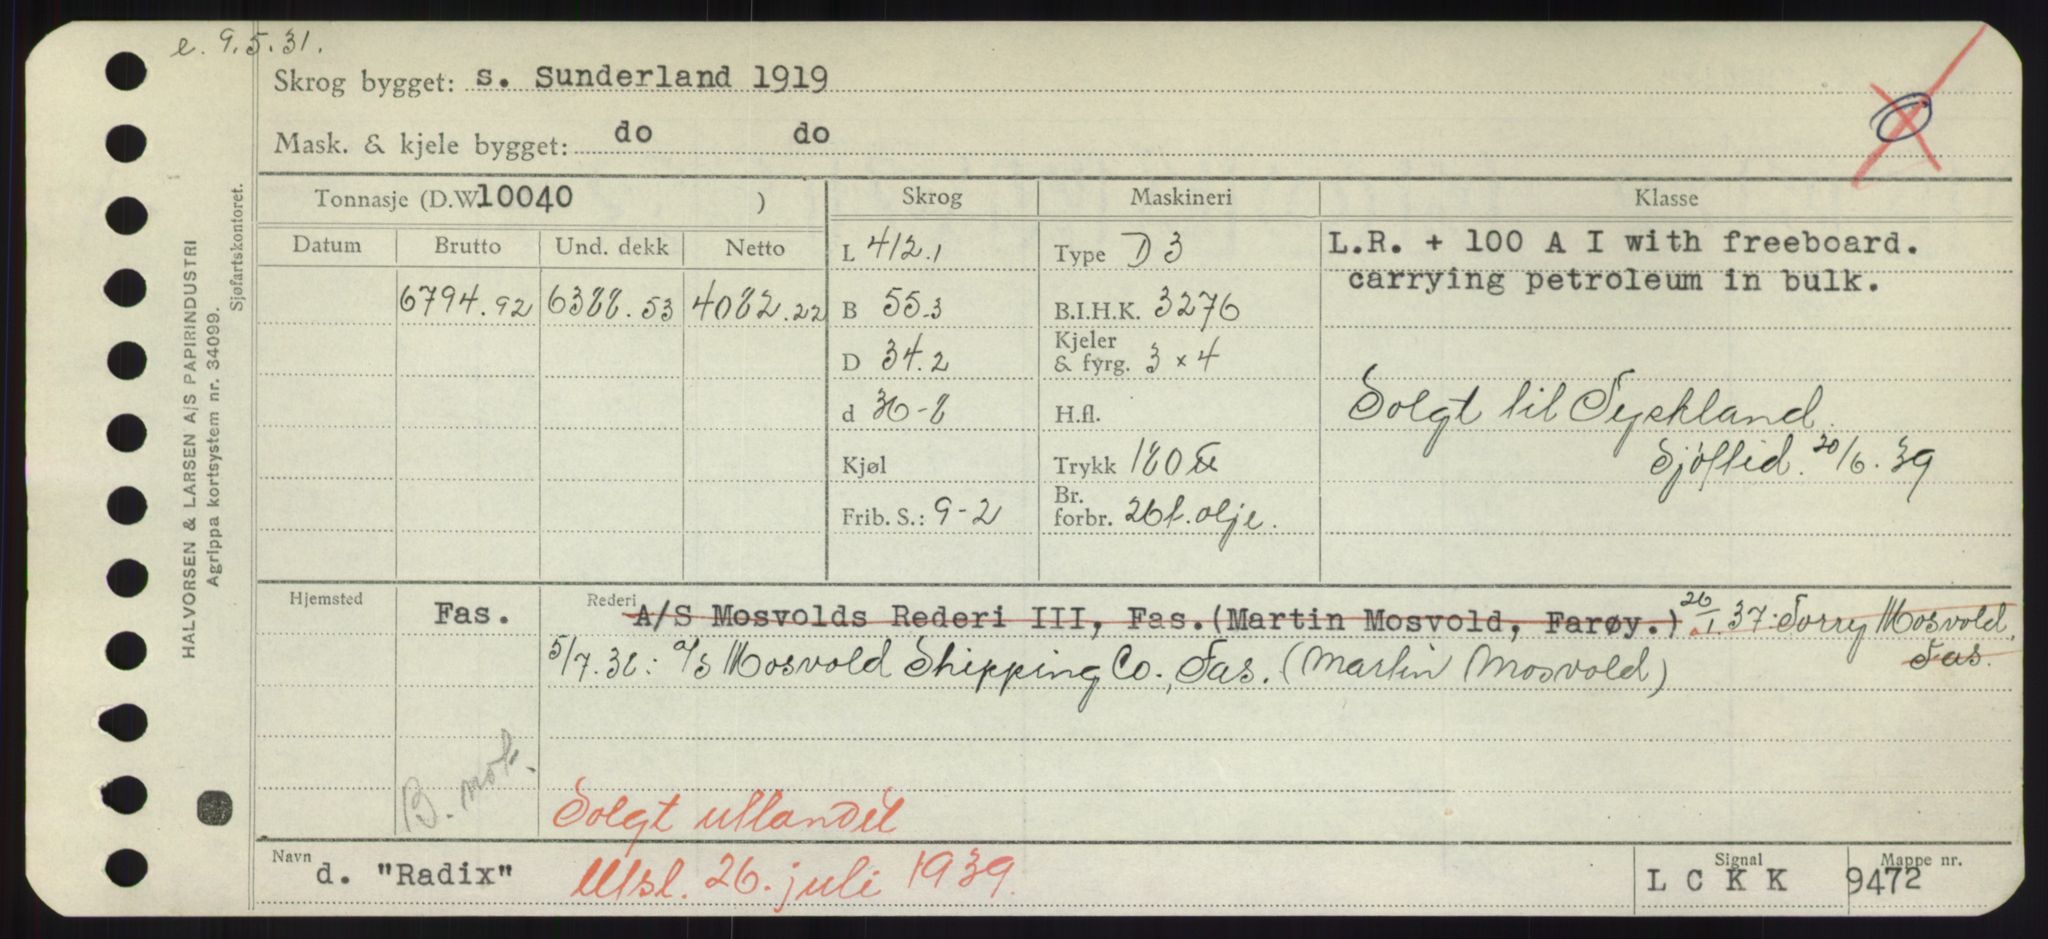 e. 9.5.31.
Skrog bygget: s. Sunderland 1919
Mask. & kjele bygget: do do
HALVORSEN & LARSEN A/S PAPIRINDUSTRI
Agrippa kortsystem nr. 34099.
Sjøfartskontoret.
Tonnasje (D.W. 10040 ) Skrog Maskineri Klasse
Datum Brutto Und. dekk Netto
6794.92 6388.53 4082.22
L 412.1
B 55.3
D 34.2
d 30-8
Kjøl
Frib. S.: 9-2
Type D 3
B.I.H.K. 3276
Kjeler
& fyrg. 3 × 4
H.fl.
Trykk 180 ℔
Br.
forbr. 26 t. olje.
L.R. + 100 A I with freeboard.
carrying petroleum in bulk.
Solgt til Tyskland.
Sjöftid. 20/6. 39
Hjemsted Fas. Rederi A/S Mosvolds Rederi III, Fas. (Martin Mosvold, Farøy.) 26/1. 37: Torry Mosvold,
Fas.
5/7. 38: A/S Mosvold Shipping Co., Fas. (Martin Mosvold)
B. mot.
Solgt utlandet
Navn d. "Radix" Utsl. 26. juli 1939.
Signal L C K K
Mappe nr. 9472